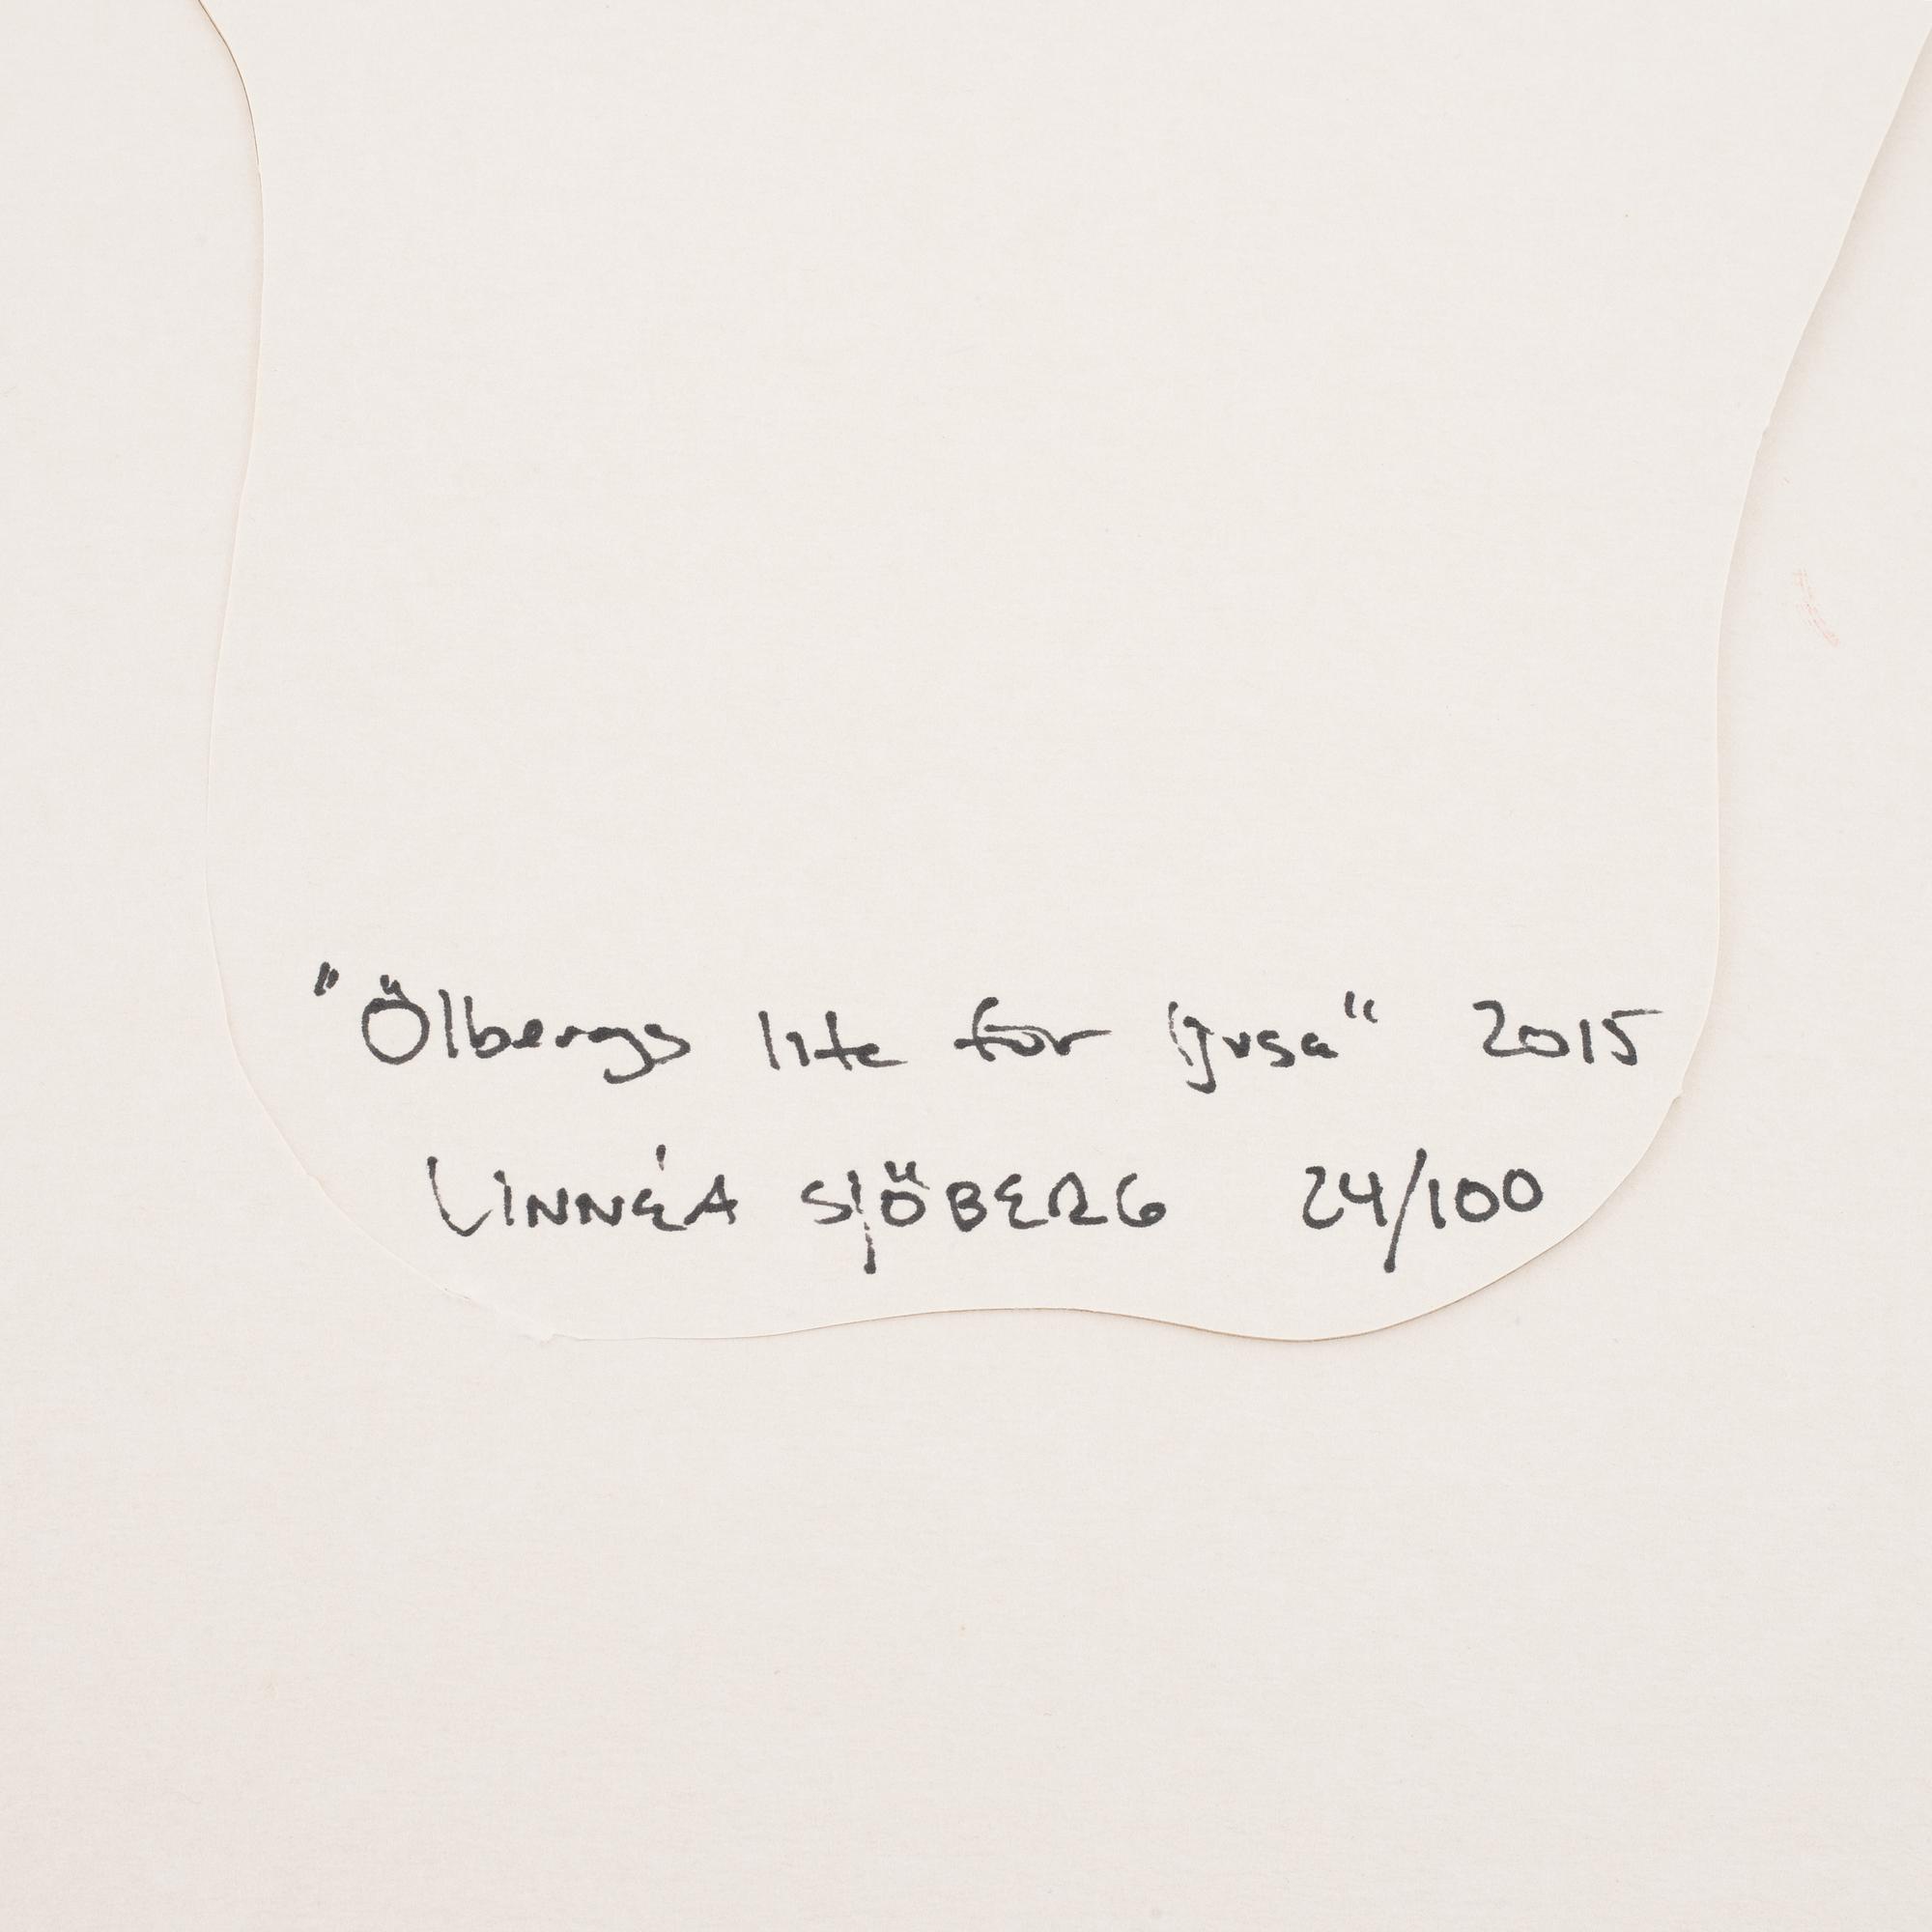 "Ölbergs lite for ljusa" 2015
LINNÉA SJÖBERG 24/100